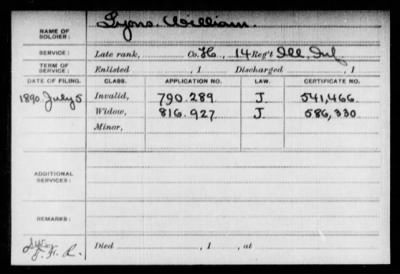 NAME OF SOLDIER: Lyons, William.
SERVICE: Late rank, Co. H., 14 Reg't Ill. Inf.
TERM OF SERVICE: Enlisted , 1 Discharged , 1
DATE OF FILING. CLASS. APPLICATION NO. LAW. CERTIFICATE NO.
1890 July 5 Invalid, 790.289 J. 541,466.
Widow, 816.927 J. 586,330
Minor,
ADDITIONAL SERVICES:
REMARKS:
Died , 1 , at